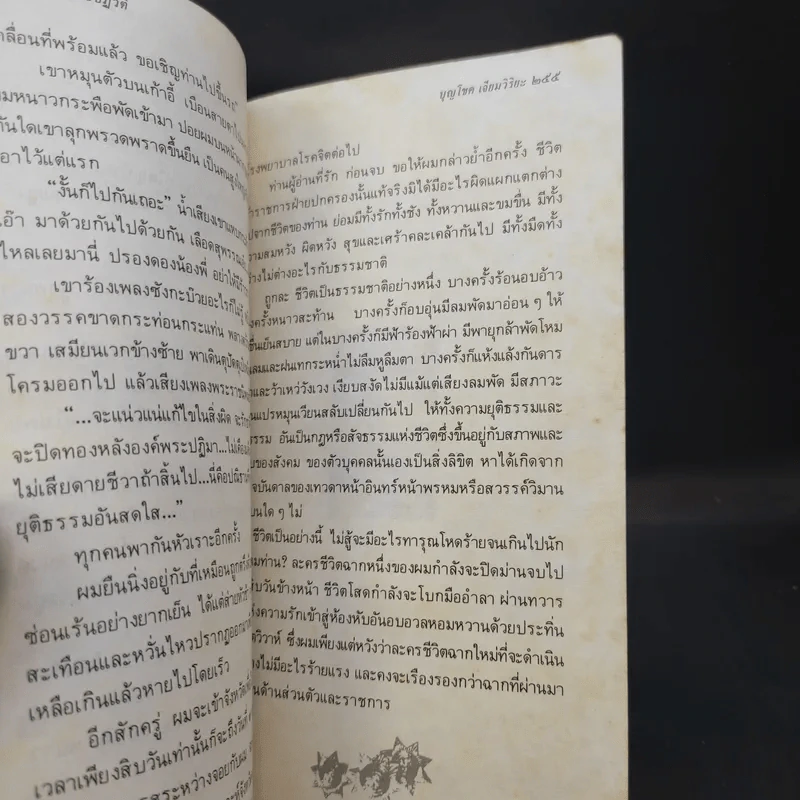 เคลื่อนที่พร้อมแล้ว ขอเชิญท่านไปขึ้นรถ”
เขาหมุนตัวบนเก้าอี้ เบือนสายตาไป
มหนาวกระพือพัดเข้ามา ปอยผมบนหน้า
ทันใดเขาลุกพรวดพราดขึ้นยืน เป็นคน
เอาไว้แต่แรก
“งั้นก็ไปกันเถอะ” น้ำเสียงเขา
เอ๊า มาด้วยกันไปด้วยกัน เลือดสุพรรณ
ไหลเลยมานี่ ปรองดองน้องพี่ อย่าให้
เขาร้องเพลงซังกะบ๊วยอะไรก็ไม่รู้
สองวรรคขาดกระท่อนกระแท่น
ขวา เสมียนเวกข้างซ้าย พาเดินตุปัดตุเป๋
โครมออกไป แล้วเสียงเพลงพระราชนิพนธ์
“...จะแน่วแน่แก้ไขในสิ่งผิด
จะปิดทองหลังองค์พระปฏิมา...
ไม่เสียดายชีวาถ้าสิ้นไป...นี่คือปณิธาน
ยุติธรรมอันสดใส...”
ทุกคนพากันหัวเราะอีกครั้ง
ผมยืนนิ่งอยู่กับที่เหมือนถูก
ซ่อนเร้นอย่างยากเย็น ได้แต่ส่ายหัว
สะเทือนและหวั่นไหวปรากฏออกมา
เหลือเกินแล้วหายไปโดยเร็ว
อีกสักครู่ ผมจะเข้าจังหวัด
เวลาเพียงสิบวันเท่านั้นก็จะถึงวัน
ระหว่างจอยกับผม
บุญโชค เจียมวิริยะ ๒๕๕
โรงพยาบาลโรคจิตต่อไป
ท่านผู้อ่านที่รัก ก่อนจบ ขอให้ผมกล่าวย้ำอีกครั้ง ชีวิต
ข้าราชการฝ่ายปกครองนั้นแท้จริงมิได้มีอะไรผิดแผกแตกต่าง
ไปจากชีวิตของท่าน ย่อมมีทั้งรักทั้งชัง ทั้งหวานและขมขื่น มีทั้ง
ความสมหวัง ผิดหวัง สุขและเศร้าคละเคล้ากันไป มีทั้งมืดทั้ง
สว่างไม่ต่างอะไรกับธรรมชาติ
ถูกละ ชีวิตเป็นธรรมชาติอย่างหนึ่ง บางครั้งร้อนอบอ้าว
บางครั้งหนาวสะท้าน บางครั้งก็อบอุ่นมีลมพัดมาอ่อน ๆ ให้
ชื่นเย็นสบาย แต่ในบางครั้งก็มีฟ้าร้องฟ้าผ่า มีพายุกล้าพัดโหม
ลมและฝนเทกระหน่ำไม่ลืมหูลืมตา บางครั้งก็แห้งแล้งกันดาร
และว้าเหว่วังเวง เงียบสงัดไม่มีแม้แต่เสียงลมพัด มีสภาวะ
แปรหมุนเวียนสลับเปลี่ยนกันไป ให้ทั้งความยุติธรรมและ
ธรรม อันเป็นกฎหรือสัจธรรมแห่งชีวิตซึ่งขึ้นอยู่กับสภาพและ
ของสังคม ของตัวบุคคลนั้นเองเป็นสิ่งลิขิต หาได้เกิดจาก
บันดาลของเทวดาหน้าอินทร์หน้าพรหมหรือสวรรค์วิมาน
ใด ๆ ไม่
ชีวิตเป็นอย่างนี้ ไม่สู้จะมีอะไรทารุณโหดร้ายจนเกินไปนัก
ท่าน? ละครชีวิตฉากหนึ่งของผมกำลังจะปิดม่านจบไป
วันข้างหน้า ชีวิตโสดกำลังจะโบกมืออำลา ผ่านทวาร
แห่งความรักเข้าสู่ห้องหับอันอบอวลหอมหวานด้วยประทิ่น
วิวาห์ ซึ่งผมเพียงแต่หวังว่าละครชีวิตฉากใหม่ที่จะดำเนิน
ไม่มีอะไรร้ายแรง และคงจะเรืองรองกว่าฉากที่ผ่านมา
ด้านส่วนตัวและราชการ